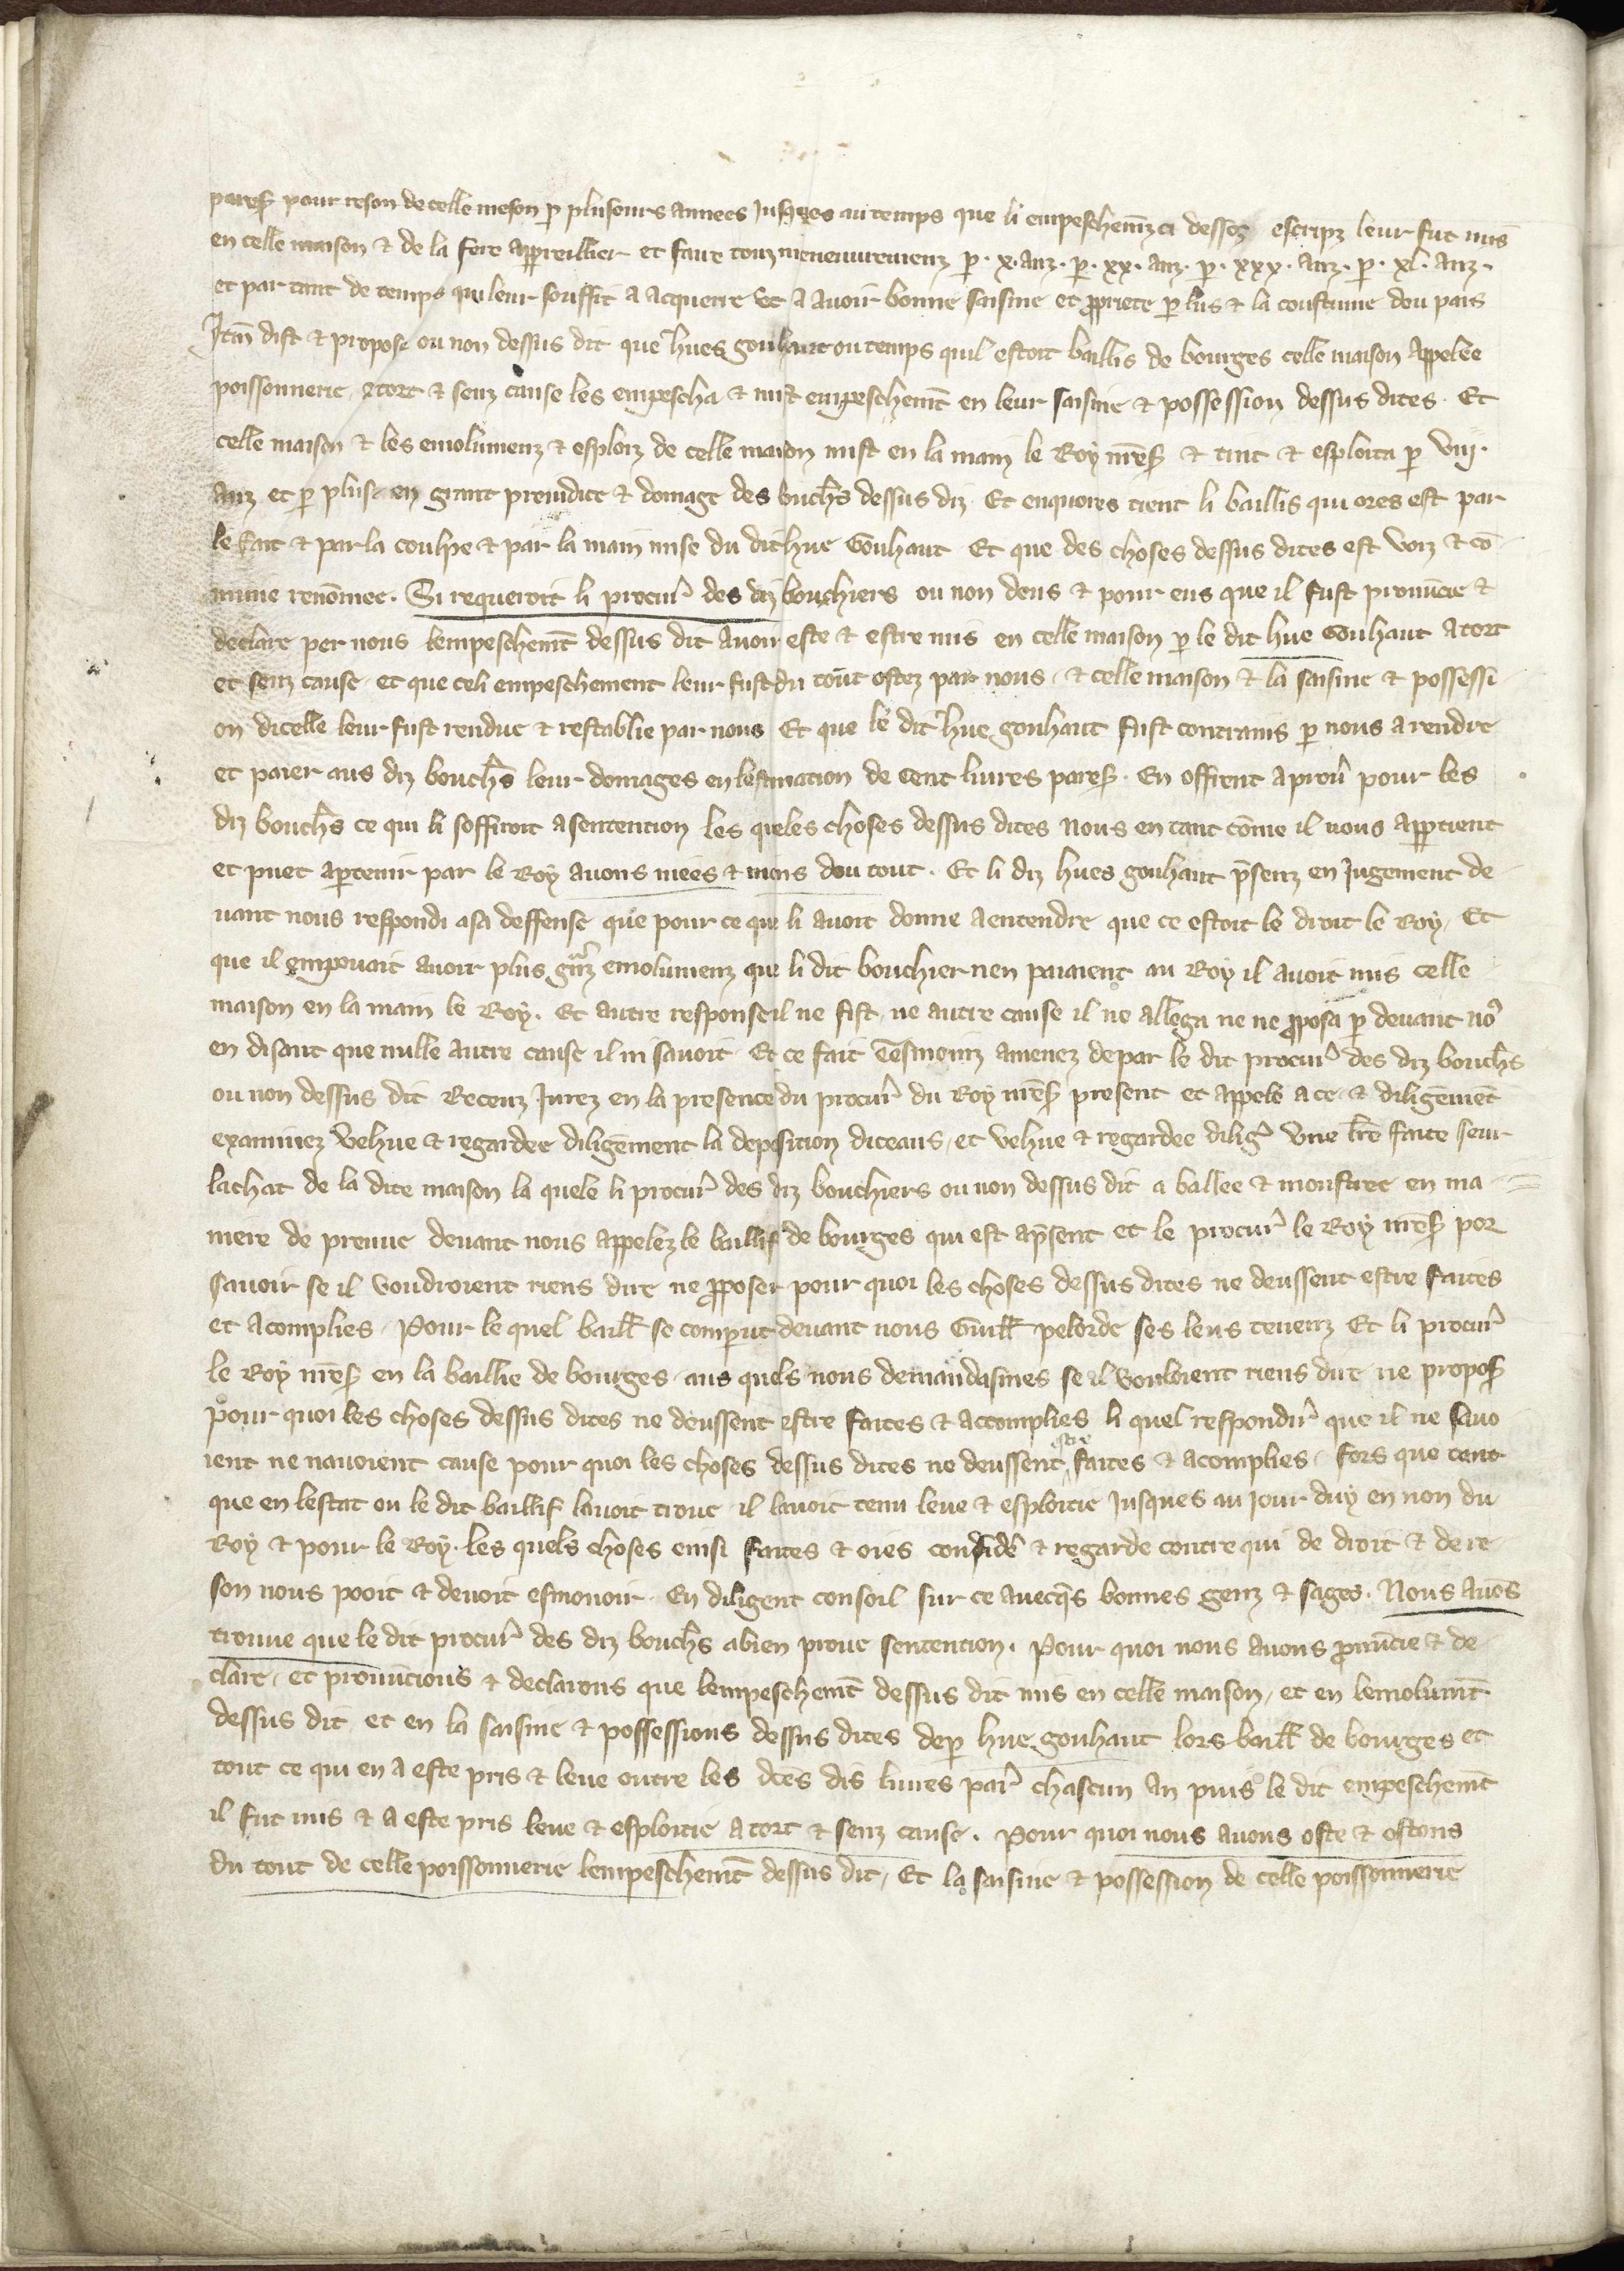 pares̃ pour reson de celle meson p̲ pluseurs annees jusques au temps que li empeschemz̃ ci dessoz escripz leur fut mis
en celle maison & de la fere appreillier et faire touz menemuremenz p̲ . x . anz . p̲ . xx . anz . p̲ . xxx . anz . p̲ . xl . anz .
et par tant de temps qui leur souffit a acquerre et a avoir bonne saisine et p̲priete p̲ lus & la coustume dou pais
Itm̃ dist & propose ou non dessus dit que hues gouhaut ou temps quil estoit baillis de bourges celle maison appelee
poissonnerie a tort & senz cause les empescha & mist empeschemt̃ en leur saisine & possession dessus dites . Et
celle maison & les emolumenz & esploiz de celle maison mist en la main le Roy nr̃es̃ & tint & esploita p̲ viij .
anz et p̲ plus en grant preiudice & domage des buchr̃s dessus diz . Et enquores tient li baillis qui ores est par
le fait & par la coulpe & par la main mise du dit hue Gouhaut Et que des choses dessus dites est voiz & cõ
mune renõmee . Si requeroit li procur̃ des diz bouchiers ou non deus & pour eus que il fust pronũcie &
declare per nous lempeschemt̃ dessus dit avoir este & estre mis en celle maison p̲ le dit hue Gouhaut a tort
et senz cause et que celi empeschement leur fust du tout ostez par nous & celle maison & la saisine & possessi
on dicelle leur fust rendue & restablie par nous Et que le dit hue gouhaut fust contrains p̲ nous a rendre
et paier aus diz bouchr̃s leur domages en lestimacion de Cent livres pares̃ . En offrent a prov̉ pour les
diz bouchr̃s ce qui li soffiroit a sentencion les queles choses dessus dites nous en tant cõme il nous app̲tient
et puet ap̲tenir par le Roy avons niees & nions dou tout . Et li diz hues gouhaut p̃senz en jugement de
vant nous respondi a sa deffense que pour ce que li avoit donne a entendre que ce estoit le droit le Roy / Et
que il empouait avoir plus gr̃nz emolumenz que li dit bouchier nen paiaient au Roy il avoit mis celle
maison en la main le Roy . Et autre response il ne fist ne autre cause il ne allega ne ne p̲posa p̲ devant no⁹
en disant que nulle autre cause il ni savoit . Et ce fait tesmoinz amenez de par le dit procur̃ des diz bouchr̃s
ou non dessus dit Receuz jurez en la presence du procur̃ du Roy nr̃es̃ present et appele a ce & diligẽmẽt
examinez Vehue & regardee diligẽment la deposicion diceaus et vehue & regardee dilig̃ vne lr̃e faite seur
lachat de la dite maison la quele li procur̃ des diz bouchiers ou non dessus dit a baillee & monstree en ma
niere de preuve devant nous appelez le baillif de bourges qui est ap̃sent et le procur̃ le Roy nr̃es̃ por
savoir se il voudroient riens dire ne p̲poser pour quoi les choses dessus dites ne deussent estre faites
et acomplies . Pour le quel baill̃ se comparut devant nous Guill̃ pelorde ses leus tenenz Et li procur̃
le Roy nr̃es̃ en la baillie de bourges aus quels nous demandasmes se il vouloient riens dire ne propos̃
pour quoi les choses dessus dites ne deussent estre faites & accomplies li quel respondir̃ que il ne savo
ient ne navoient cause pour quoi les choses dessus dites ne deussent estre faites & acomplies . fors que tant
que en lestat ou le dit baillif lavoit trove il lavoit tenu leve & esploitie jusques au jour duy en non du
Roy & pour le Roy . les quels choses einsi faites & oies consider̃ & regarde contre qui de droit & de re
son nous pooit & devoit esmovoir . En diligent consoil sur ce avecq̃s bonnes genz & sages . Nous avõs
trouve que le dit procur̃ des diz bouchr̃s a bien prove sentencion . Pour quoi nous avons p̲nũcie & de
clare et pronũcions & declarons que lempeschemt̃ dessus dit mis en celle maison / et en lemolumt̃
dessus dit et en la saisine & possessions dessus dites dep̲ hue gouhaut lors baill̃ de bourges et
tout ce qui en a este pris & leve outre les dt̃es dis livres par̃ chascun an puis le dit empeschemt̃
il fut mis & a este pris leve & esploitie a tort & senz cause . Pour quoi nous avons oste & ostons
du tout de celle poissonnerie lempeschemt̃ dessus dit , Et la saisine & possession de celle poissonnerie